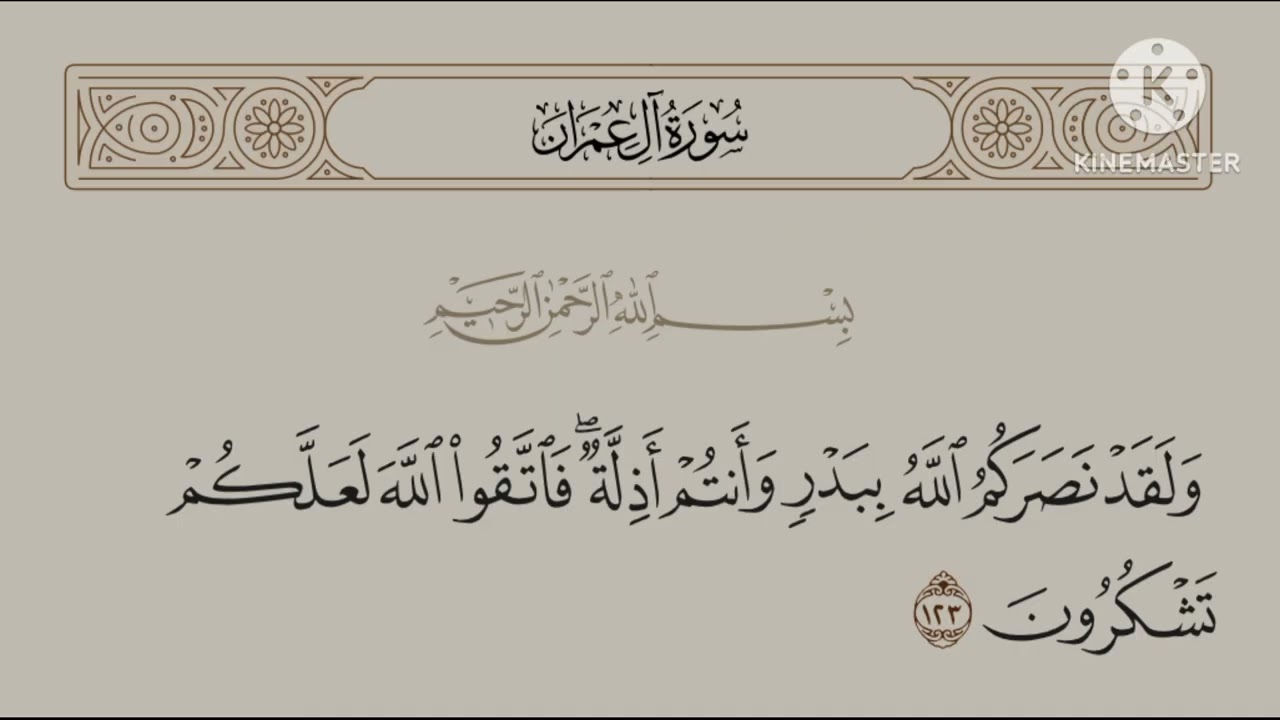 سُورَةُ آلِ عِمْرَانَ
K
KINEMASTER
بِسْمِ ٱللَّهِ ٱلرَّحْمَٰنِ ٱلرَّحِيمِ
وَلَقَدْ نَصَرَكُمُ ٱللَّهُ بِبَدْرٍ وَأَنتُمْ أَذِلَّةٌ ۖ فَٱتَّقُوا۟ ٱللَّهَ لَعَلَّكُمْ
تَشْكُرُونَ ١٢٣